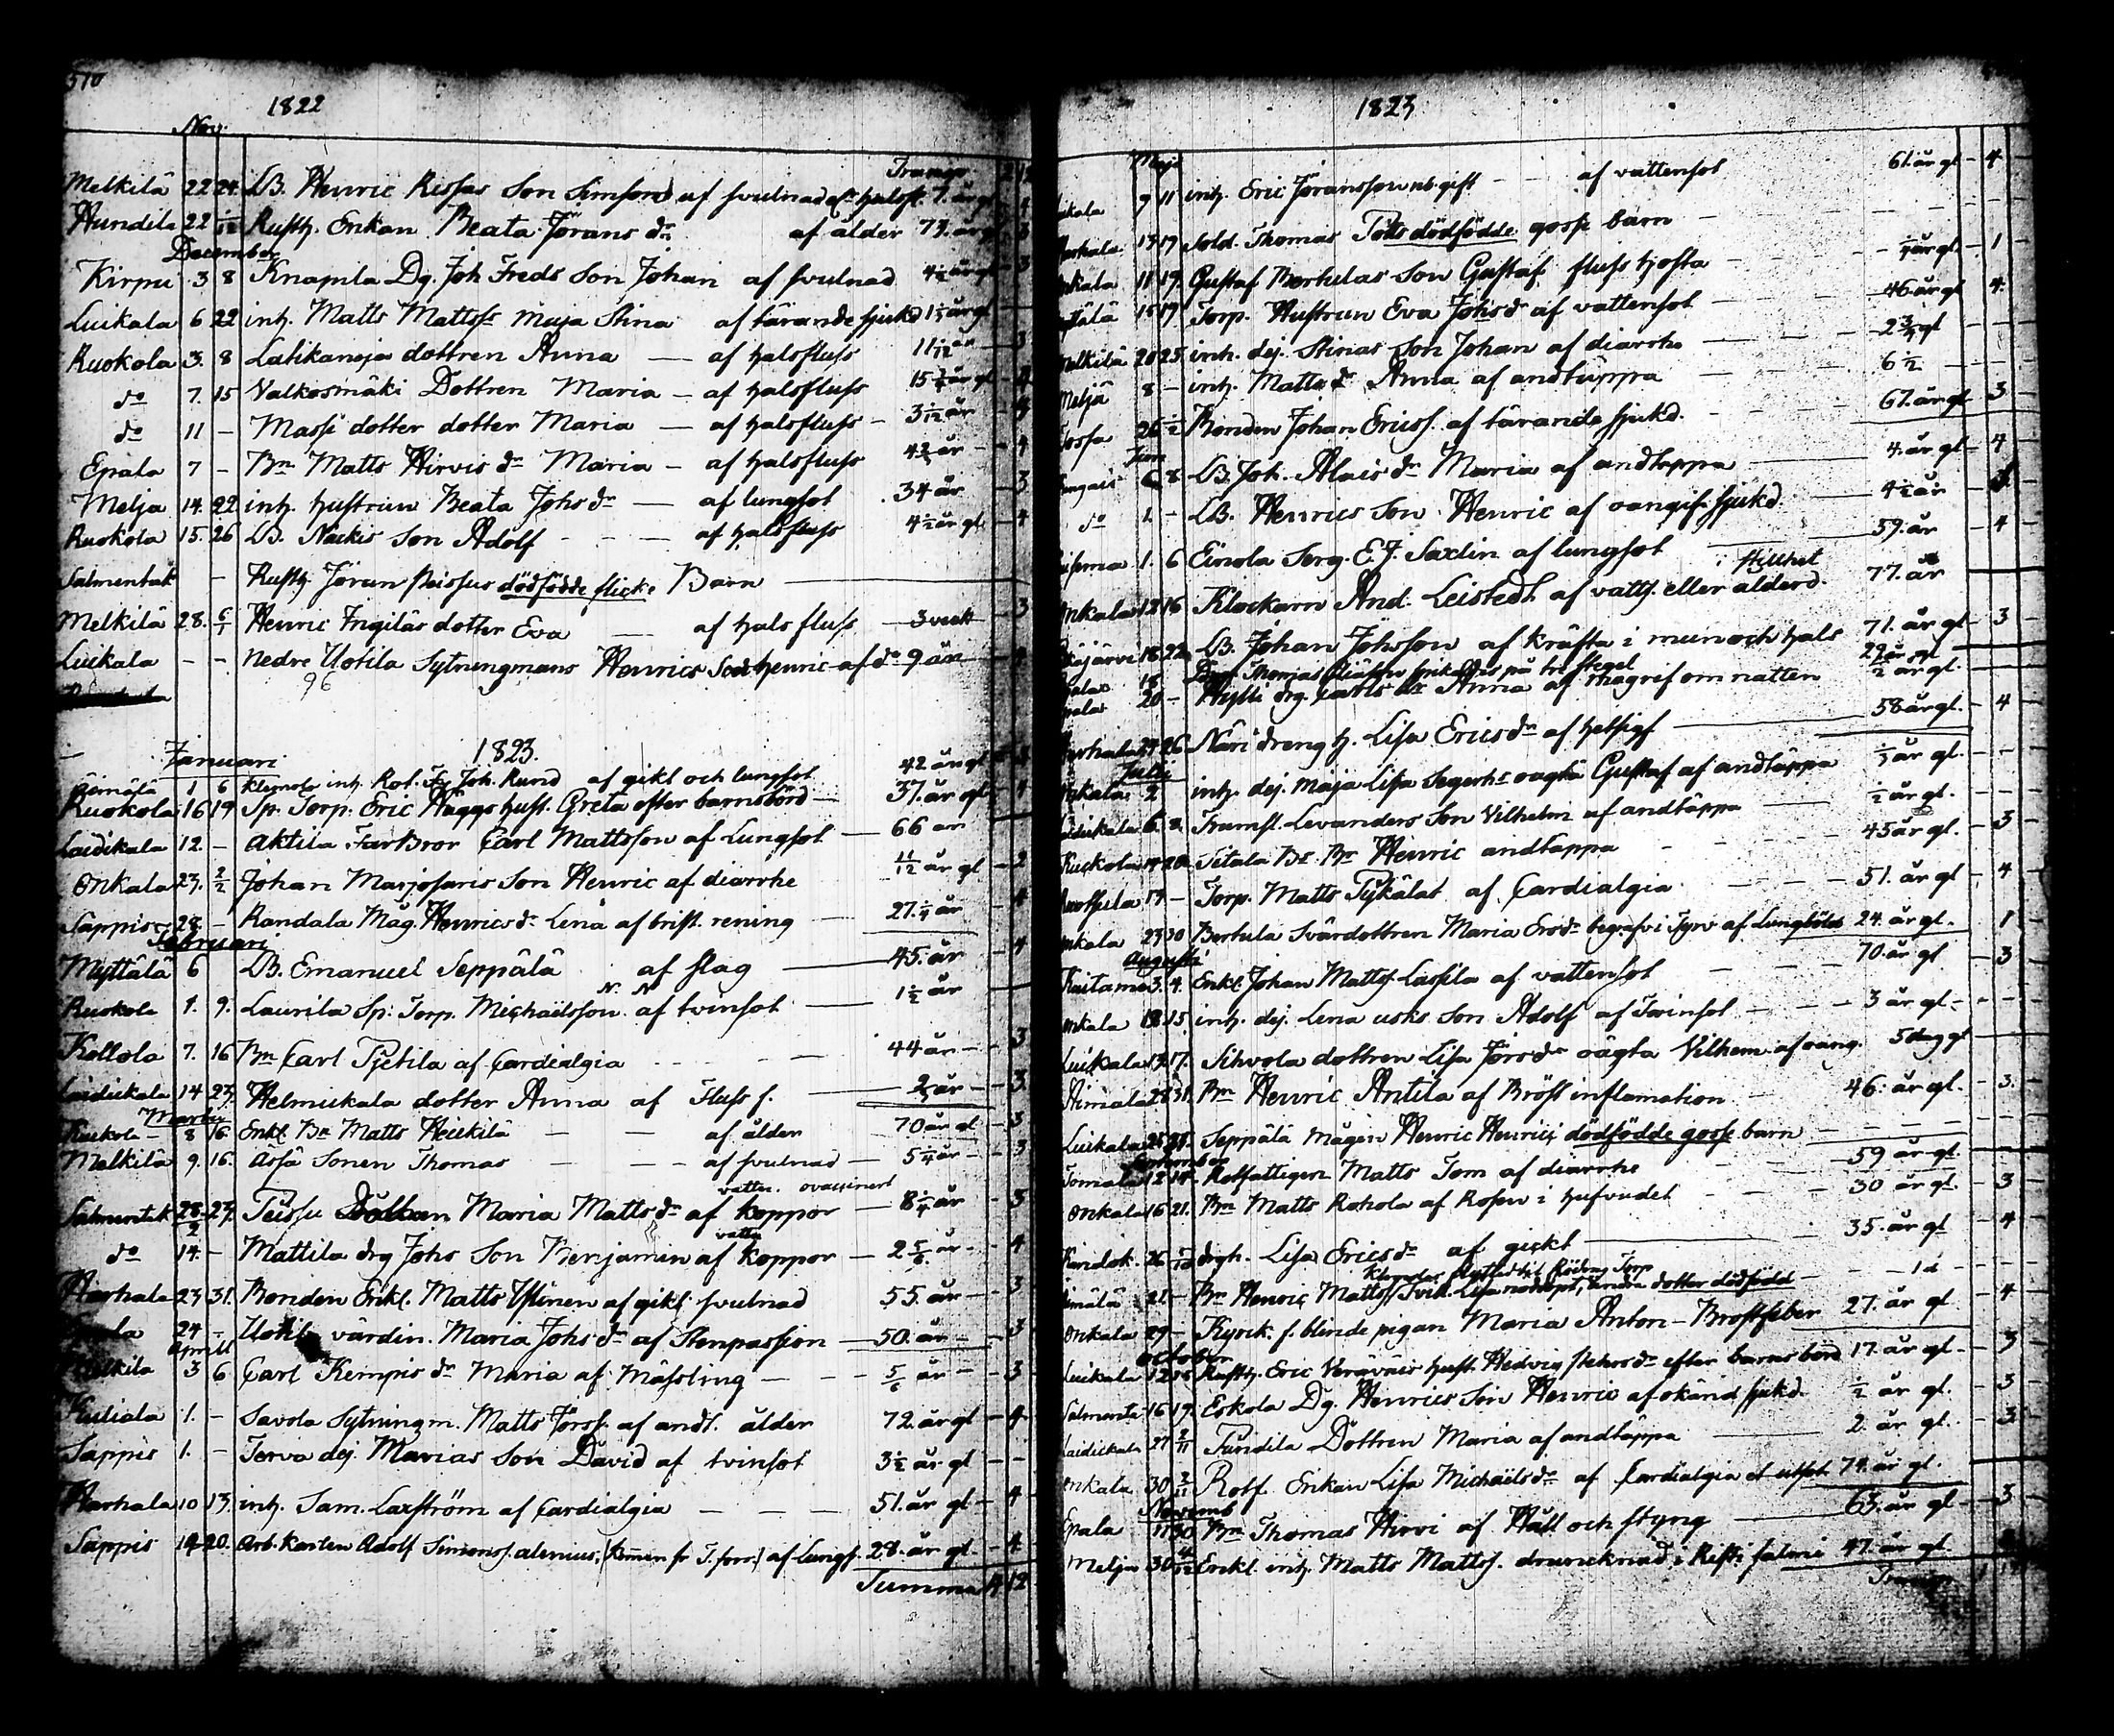 510
1822
Nov.
Transp.
Melkilä 22 24 LB. Henric Rissas Son Simson af svulnad och halsfl. 7. år gl
Hundila 22 1/12 Rusth. Enkan Beata Jörans dr af ålder 73. år gl 3
December
Kirpu 3 8 Knapila Dg. Joh Freds Son Johan af svulnad 4 1/2 år gl 3
Luikala 6 22 inh. Matts Mattss Maja Stina af tärande sjukd 1 1/2 år gl
Ruokola 3. 8 Latikaneja dottren Anna — af halsfluss 11/12 år 3
do 7. 15 Valkosmäki Dottren Maria — af halsfluss 15 3/4 år gl 4
do 11 - Massi dotter dotter Maria — af halsfluss - 3 1/12 år
Epala 7 - Bn Matts Hirvis dr Maria — af halsfluss 4 3/4 år 4
Melja 14. 22 inh. hustrun Beata Johs dr — af lungsot 34 år 3
Ruokola 15. 26 LB. Näckis Son Adolf - - - af halsfluss 4 1/2 år gl 4
Salmentak - Rusth Jöran Peissus dödfödde flicke Barn
Melkilä 28. 6/1 Henric Ingiläs dotter Eva — af halsfluss 3 veck 3
Luikala - - Nedre Uotila Sytningmans Henrics Son Henric af do 9 år
96
1823.
Januari
1 6 Klemola inh. Rot. Joh. Rund af gikt och lungsot 42 år gl
Ruokola 16 19 Sp. Torp. Eric Häggs hust. Greta efter barnsbörd — 37. år gl 4
Laidikala 12. - Aktila FarBror Carl Mattsson af Lungsot — 66 år
Onkala 23. 2/2 Johan Marjosaris Son Henric af diarrhe 11/12 år gl 2
Sappis 28 - Randala Måg. Henrics dr Lena af brist. rening 27. 1/4 år 4
Februari
Myttälä 6 LB. Emanuel Seppälä af slag — 45. år 4
Ruokola 1. 9. Laurila Sp: Torp. Michaëlsson N. N af tvinsot — 1 1/2 år
Kallola 7. 16 Bn Carl Pjetila af Cardialgia 44 år — 3
Laidikala 14 23. Helmickala dotter Anna af Fluss f. — 2 år — 3
Martii
Ruokola - 8 16 Enkl. Bn Matts Heickilä — af ålder 70 år gl 3
Melkilä 9. 16. Assä Sonen Thomas — af svulnad — 5 1/4 år — 3
vatten. ovaccinerd
Salmentak 28/2 23. Tuissu Dottren Maria Matts dr af koppor — 8 1/4 år 3
vatten
do 14. - Mattila drg Johs Son Benjamin af koppor — 2 5/6. år — 4
Harhala 23 31. Bonden Enkl. Matts Uslinen af gikt. svulnad 55. år — 3
Epala 24 - Uotila värdin. Maria Johs dr af Stenpassion — 50. år — 3
Aprill
Melkila 3 6 Carl Kempis dr Maria af Mässling — 5/6 år — 3
Kuliala 1. - Savola Sytningm. Matts Jörss. af andt. ålder 72. år gl — 4
Sappis 1. - Terva dej Marias Son David af tvinsot 3 1/2 år gl - -
Harhala 10 13. inh. Sam. Laxström af Cardialgia — 51. år gl — 4
Sappis 14 20. Arb. Karlen Adolf Simonss. alenius, (Komen fr T.fors.) af Lungs. 28. år gl. — 4
Summa 12
1823
Maji
Luikala 9 11 inh. Eric Jöransson nb. gift — af vattensot 61. år gl — 4
Harhala 13 17 Sold. Thomas Totts dödfödde gosse barn —
Onkala 11 19. Gustaf Bertulas Son Gustaf. fluss hosta — 1/4 år gl — 1
Myttälä 15 19 Torp. Hustrun Eva Johs dr af vattensot — 46 år gl 4.
Melkilä 20 25. inh. dej. Stinas Son Johan af diarrhe — 2 3/4 gl
Meljä 8 - inh. Matts dr Anna af andtäppa — 6 1/2
26 1/2 Bonden Johan Ericss. af tärande sjukd. — 67. år gl 3
Juni
6 8 LB. Joh. Alais dr Maria af andtäppa — 4. år gl 4
do 1. - LB. Henrics Son Henric af oangif. sjukd. — 4 1/2 år 3
1. 6 Einola Serg. E. J. Saxlin af lungsot — 59. år — 4
Onkala 12 16 Klockarn And. Leistedt. af vatts. eller alderd. 77. år
18 22 LB. Johan Johsson af kräfta i mun och hals 71. år gl — 3
18 Thomas på tre Stegel 29 år gl
Epala 20 - Hylli drg. Carls dr Anna af magref om natten 1/2 år gl.
Harhala 23 26 Näri dreng h. Lisa Erics dr af hetsigf — 58 år gl. — 4
Julii
Onkala 2 inh. dej. Maja Lisa Segerhs oagta Gustaf af andtäppa 1/3 år gl.
Laidikala 6. 8. Framsl. Levanders Son Vilhelm af andtäppa — 1/2 år gl.
Ruokola 14 20 Tetala Bn Henric andtäppa 45 år gl. — 3
19. - Torp. Matts Tykälät af Cardialgia 51. år gl — 4
Onkala 23 30 Bertula Svärdottren Maria Ersdr begrafv i Tyrv. af Lungböld 24. år gl. 1
Augusti
Kuitama 3. 4. Enkl. Johan Mattss. Lassila af vattensot — 70. år gl — 3
Onkala 13 15 inh. dej. Lena usks Son Adolf af Tvinsot — 3 år gl —
Luikala 13 17. Sihvola dottren Lisa Jörs dr oägta Vilhem af oang. 5 dag gl
28 31. Bn Henric Antila af Bröst inflamation — 46. år gl. — 3.
Luikala 25 28. Seppälä mågen Henric Henrics dödfödde gosse barn
September
Tomala 12 14. Rotfattigen Matts Tom af diarrhe 59 år gl
Onkala 16 21. Bn Matts Rohola af Rosen i hufvudet — 30 år gl. — 3
26 drgh. Lisa Erics dr af gickt — 35. år gl — 4
21. - Bn Henric Mattss. Tvil. Lisa nöddöpt, andra dotter dödfödd — 1 d
Onkala 29 - Kyrck. f. blinde pigan Maria Anton — Bröstfeber 27. år gl 4
October
Luikala 12 15 Rusth. Eric Veraväis hust. Hedvig Stehrs dr efter barnsbörd 17. år gl. — 3
Salmenta 16 19. Eskola Dg. Henrics Son Henric af okänd sjukd. 1/2 år gl. — 3
Laidickala 27 2/11 Fundila Dottren Maria af andtäppa — 2. år gl. — 3
Onkala 30 2/11 Rotf. Enkan Lisa Michaëls dr af Cardialgia et utsot 74. år gl.
Novemb
Epala 11 30 Bn Thomas Hirvi af Håll och styng — 63. år gl — 3
Melja 30 Enkl. inh. Matts Mattss. drunknad i 47. år gl.
Transp.